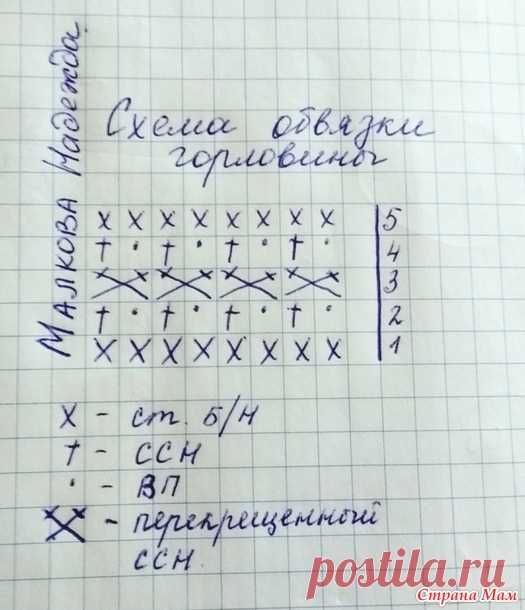 Малкова Надежда
Схема обвязки
горловины
х х х х х х х х 5
† · † · † · † · 4
3
† · † · † · † · 2
х х х х х х х х 1
х - ст. б/н
† - ССН
· - ВП
- перекрещенный
ССН.
postila.ru
Страна Мам